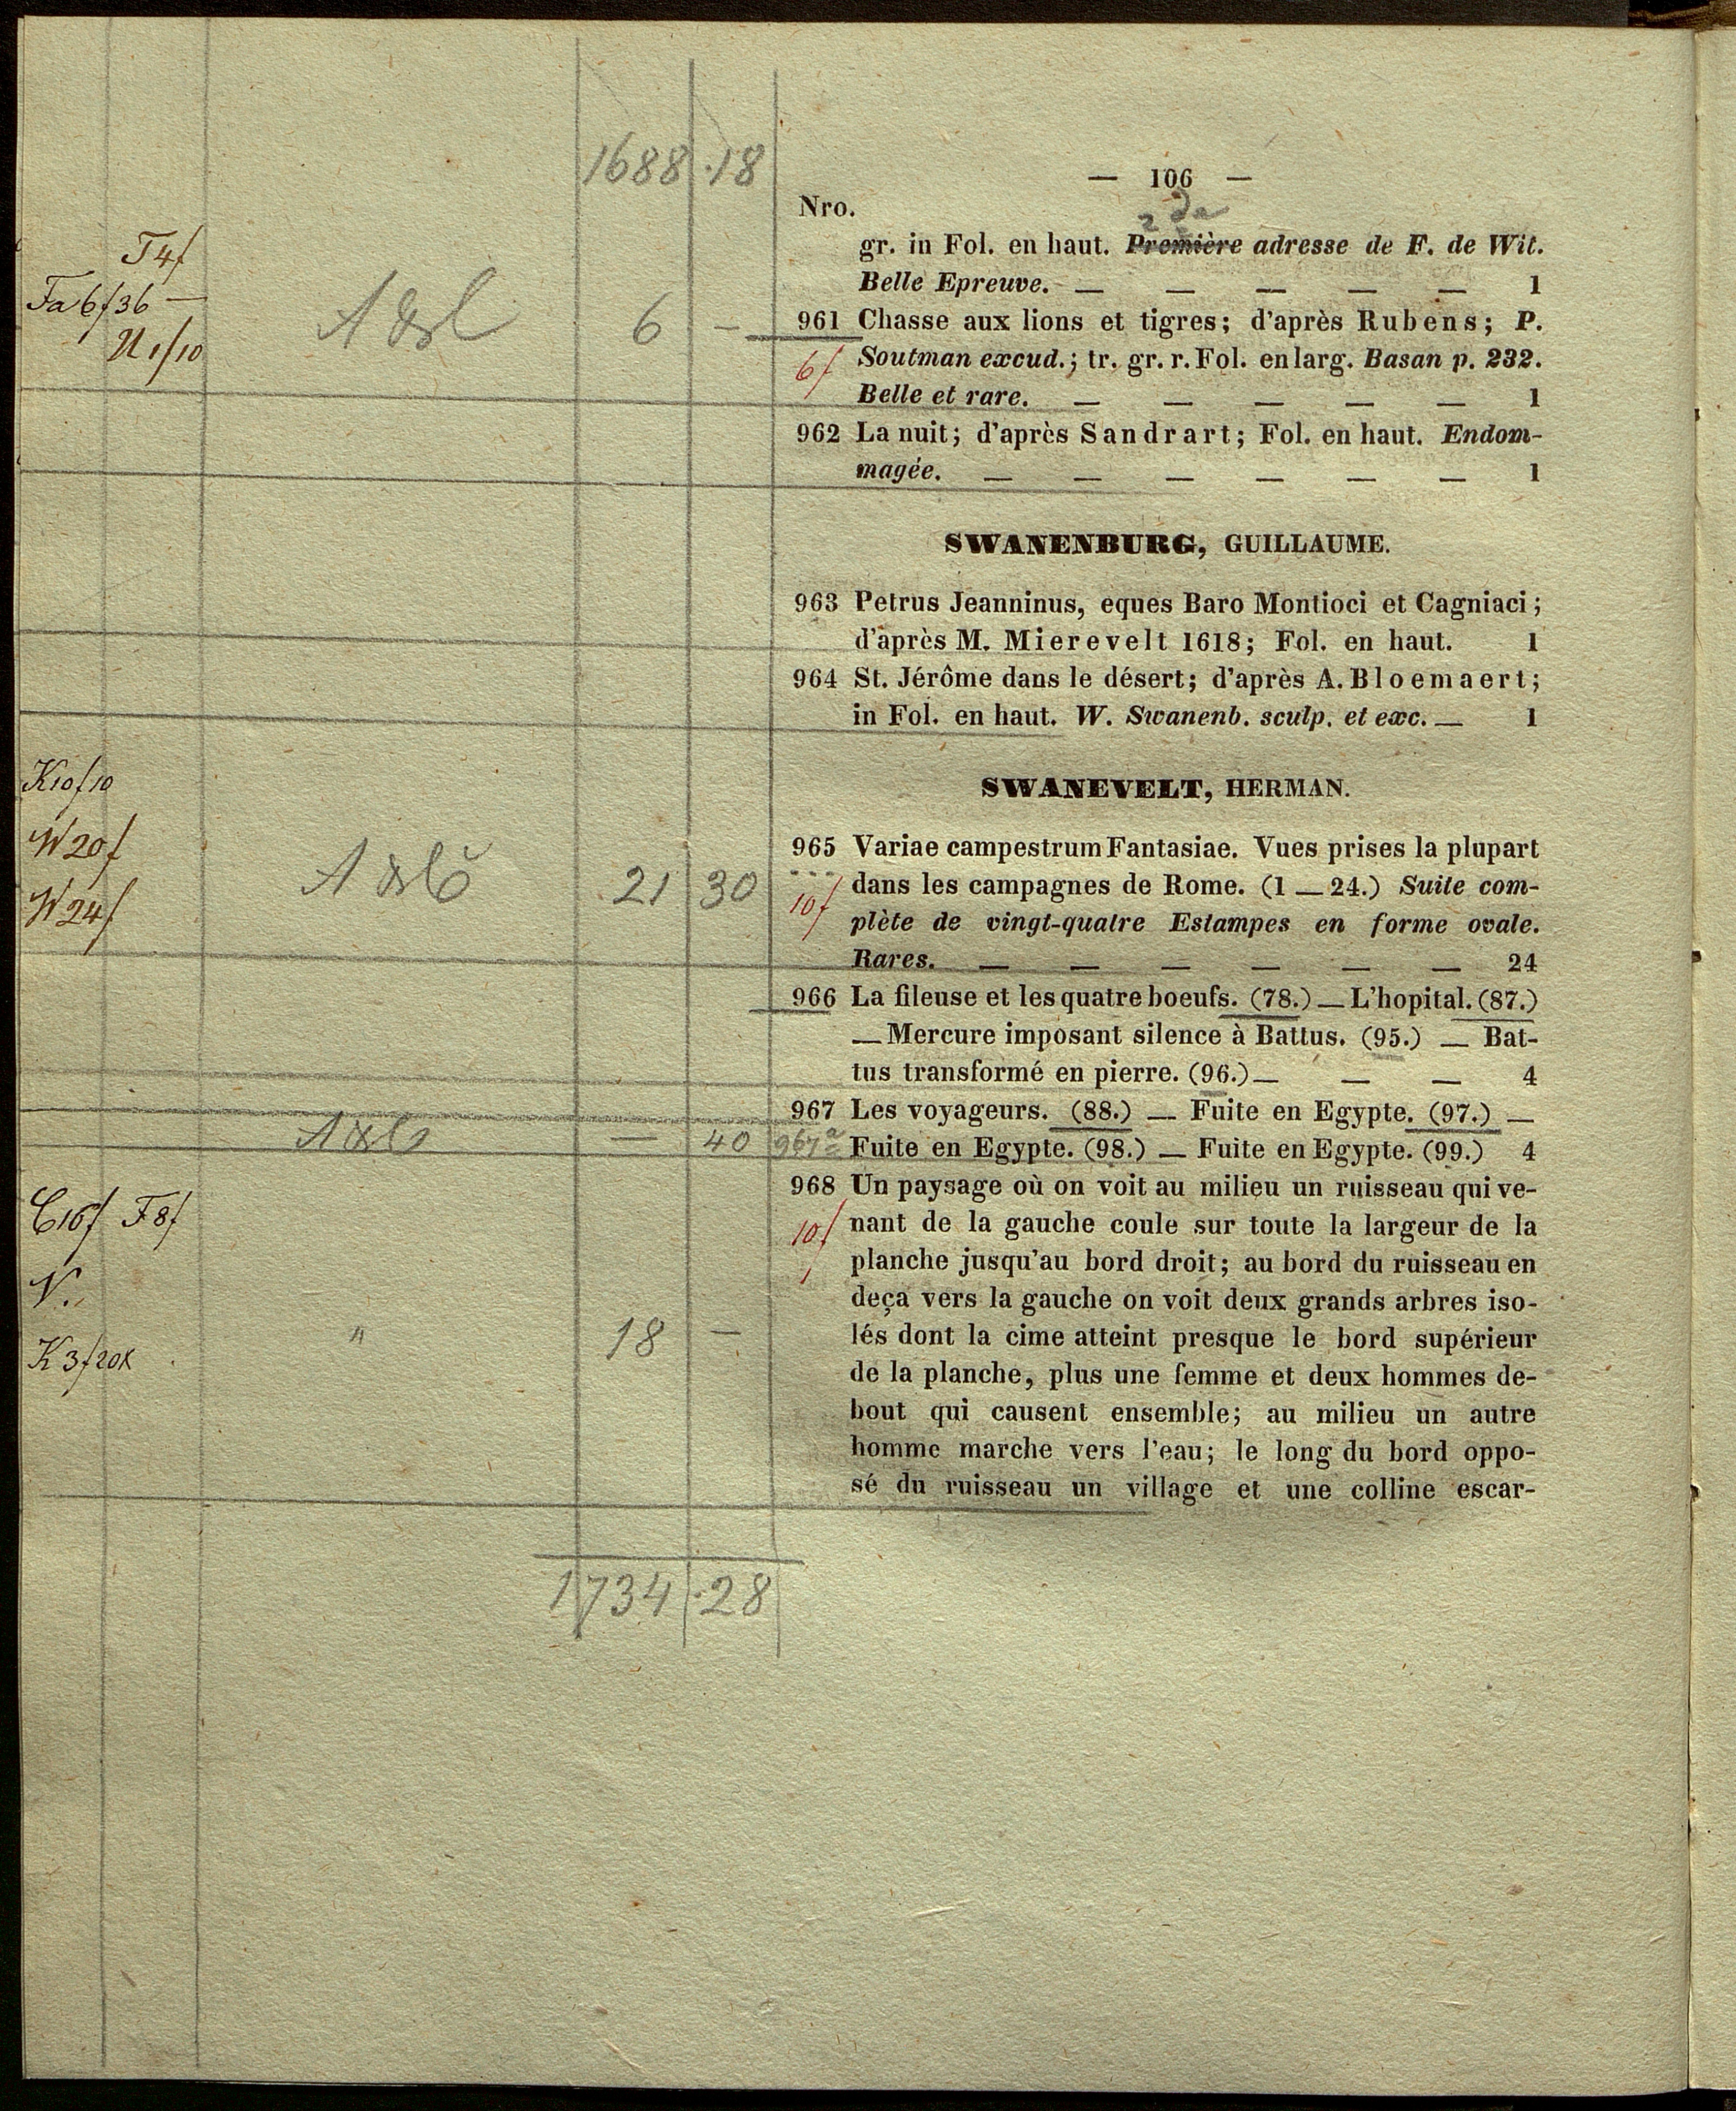 1688 · 18
— 106 —
Nro.
2de
gr. in Fol. en haut. Première adresse de F. de Wit.
Belle Epreuve. — — — — — 1
T4f
Fa6f36 —
U1f10
6 —
961 Chasse aux lions et tigres; d'après Rubens; P.
6f
Soutman excud.; tr. gr. r. Fol. en larg. Basan p. 232.
Belle et rare. — — — — — 1
962 La nuit; d'après Sandrart; Fol. en haut. Endom-
magée. — — — — — — 1
SWANENBURG, GUILLAUME.
963 Petrus Jeanninus, eques Baro Montioci et Cagniaci;
d'après M. Mierevelt 1618; Fol. en haut. 1
964 St. Jérôme dans le désert; d'après A. Bloemaert;
in Fol. en haut. W. Swanenb. sculp. et exc. — 1
SWANEVELT, HERMAN.
K10f10
W20f
W24f
21 30
965 Variae campestrum Fantasiae. Vues prises la plupart
10f
dans les campagnes de Rome. (1 — 24.) Suite com-
plète de vingt-quatre Estampes en forme ovale.
Rares. — — — — — — 24
966 La fileuse et les quatre boeufs. (78.) — L'hopital. (87.)
— Mercure imposant silence à Battus. (95.) — Bat-
tus transformé en pierre. (96.) — — — 4
967 Les voyageurs. (88.) — Fuite en Egypte. (97.) —
— 40 967a
Fuite en Egypte. (98.) — Fuite en Egypte. (99.) 4
968 Un paysage où on voit au milieu un ruisseau qui ve-
C16f F8f
10f
nant de la gauche coule sur toute la largeur de la
planche jusqu'au bord droit; au bord du ruisseau en
deça vers la gauche on voit deux grands arbres iso-
K3f20x
" 18 —
lés dont la cime atteint presque le bord supérieur
de la planche, plus une femme et deux hommes de-
bout qui causent ensemble; au milieu un autre
homme marche vers l'eau; le long du bord oppo-
sé du ruisseau un village et une colline escar-
1734 · 28